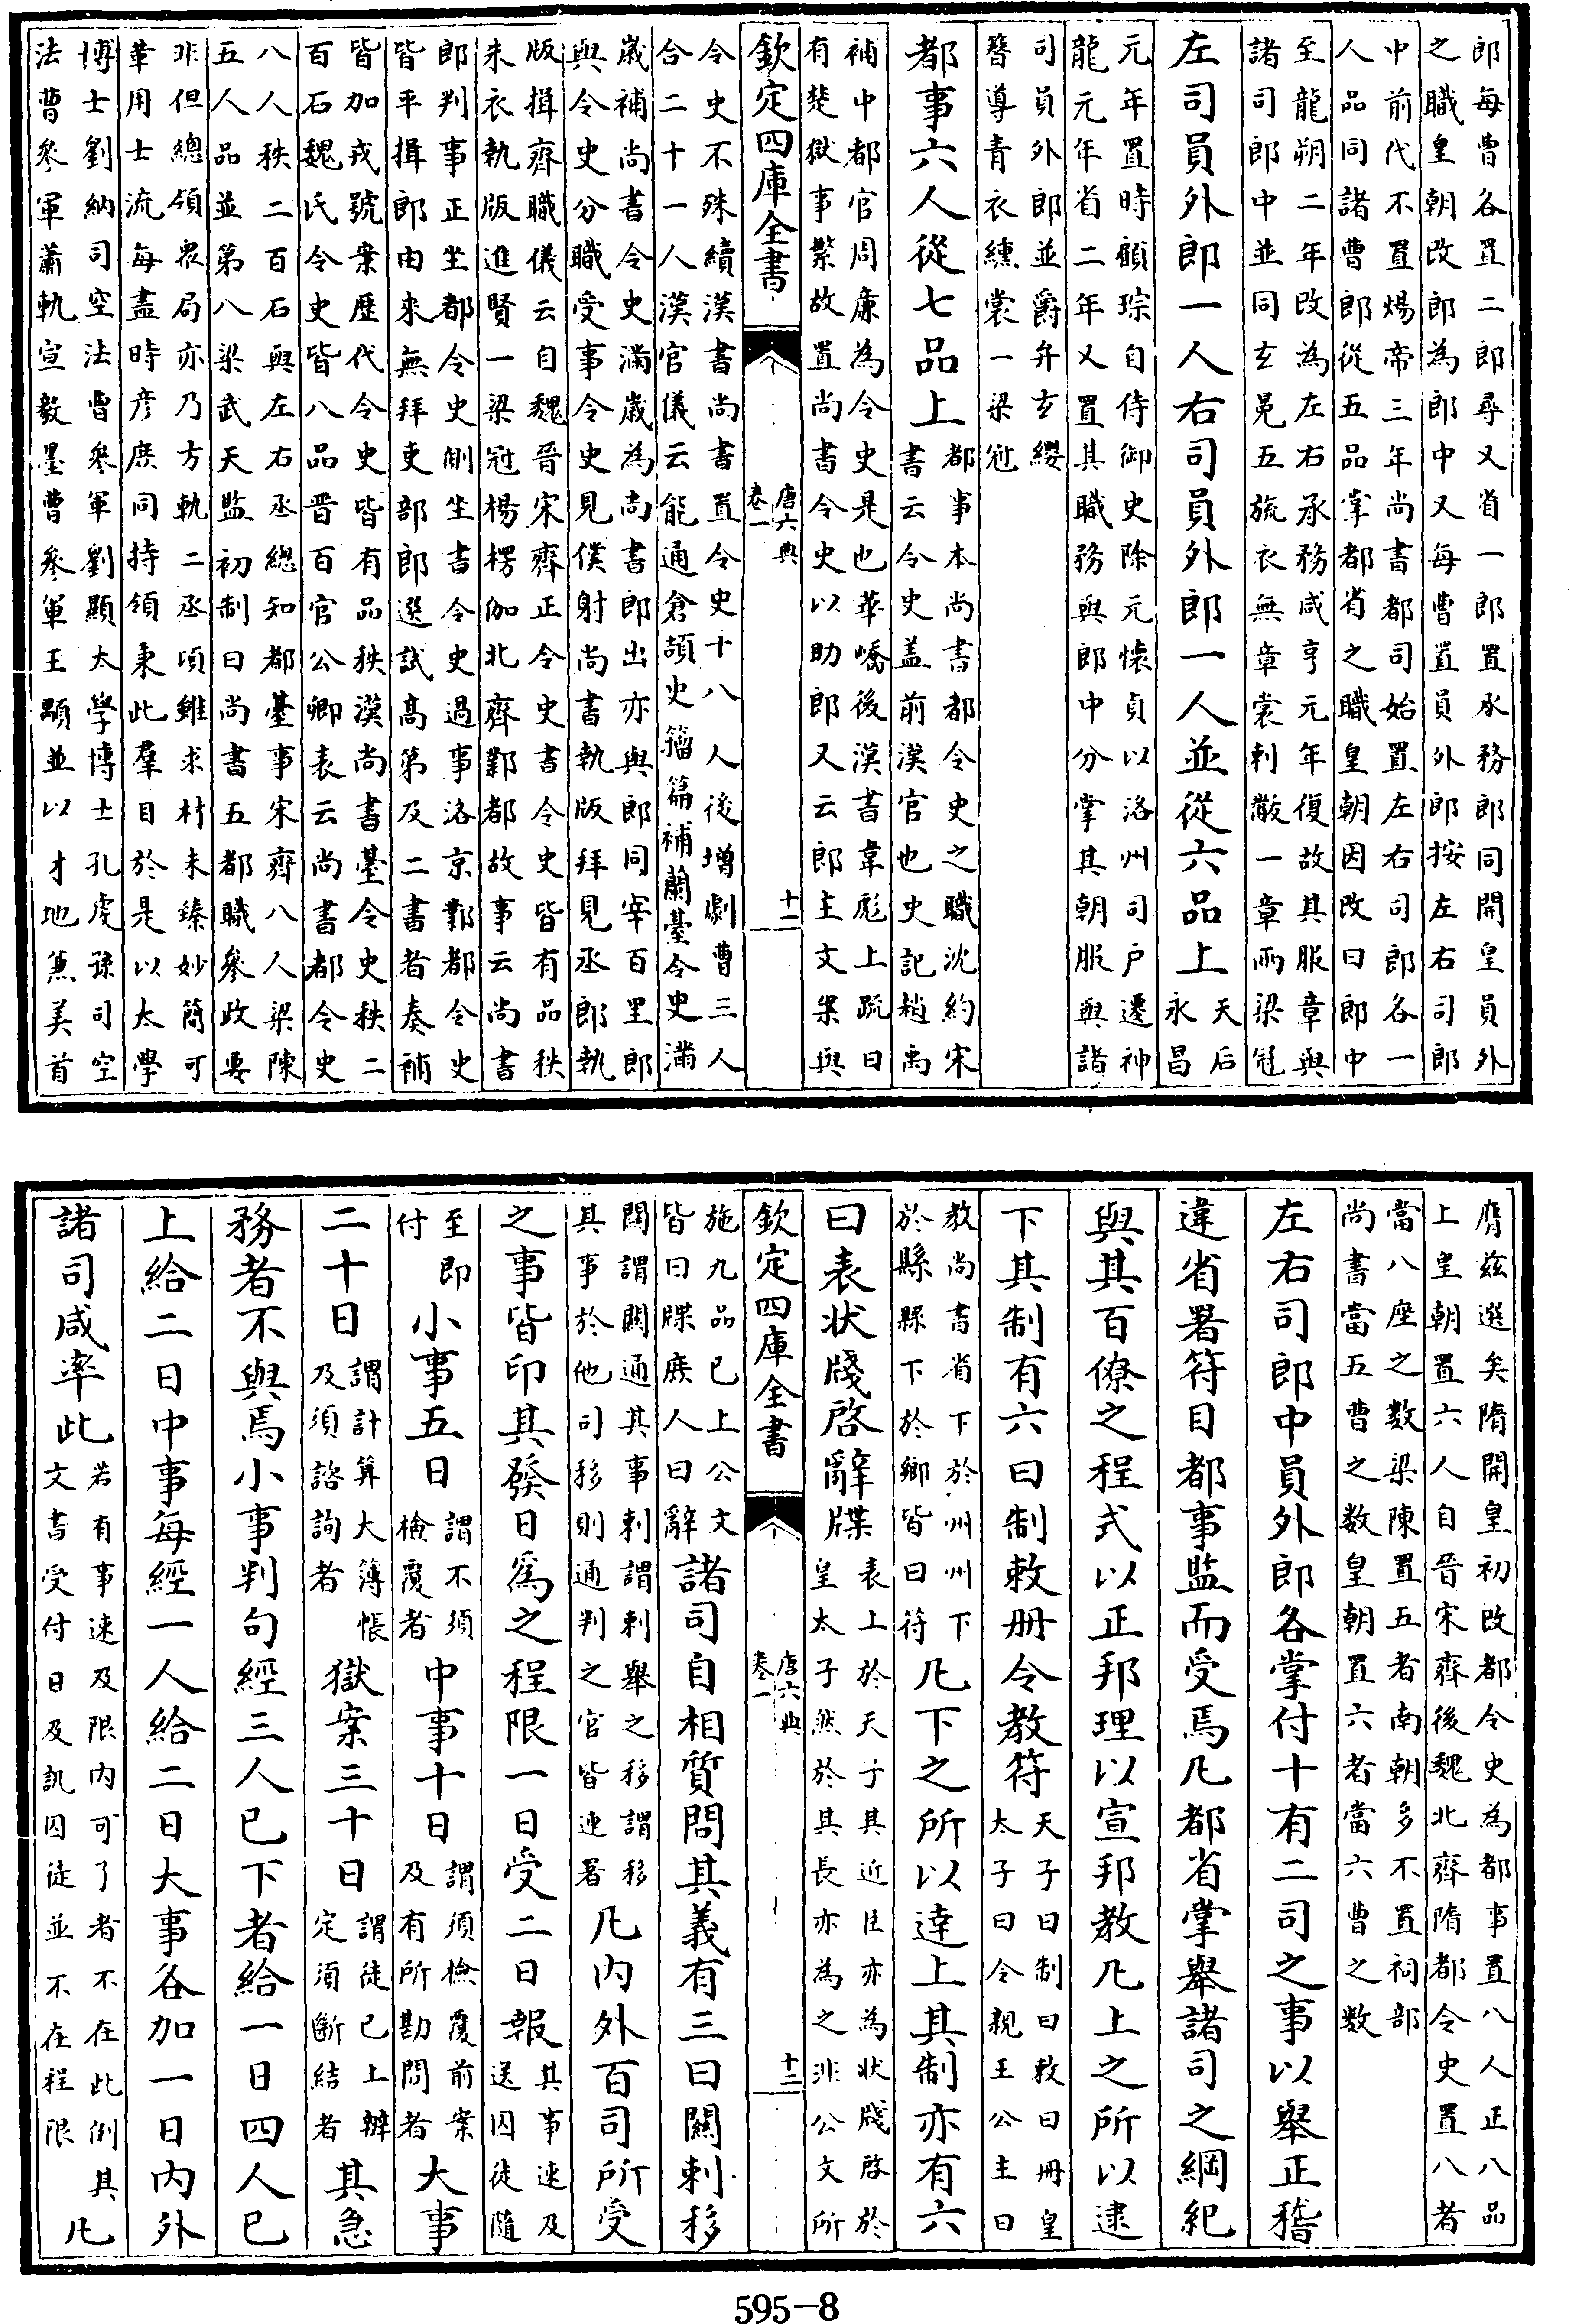 郎每曹各置二郎尋又省一郎置承務郎同開皇員外
之職皇朝改郎為郎中又每曹置員外郎按左右司郎
中前代不置煬帝三年尚書都司始置左右司郎各一
人品同諸曹郎從五品掌都省之職皇朝因改曰郎中
至龍朔二年改為左右丞務咸亨元年復故其服章與
諸司郎中並同玄冕五旒衣無章裳刺黻一章兩梁冠
左司員外郎一人右司員外郎一人並從六品上
天后
永昌
元年置時顧琮自侍御史除元懷貞以洛州司户遷神
龍元年省二年又置其職務與郎中分掌其朝服與諸
司員外郎並爵弁玄纓
簪導青衣纁裳一梁冠
都事六人從七品上
都事本尚書都令史之職沈約宋
書云令史盖前漢官也史記趙禹
補中都官周廉為令史是也華嶠後漢書韋彪上疏曰
有楚獄事繁故置尚書令史以助郎又云郎主文案與
欽定四庫全書
唐六典
卷一
十一
令史不殊續漢書尚書置令史十八人後增劇曹三人
合二十一人漢官儀云能通倉頡史籀篇補蘭臺令史滿
歲補尚書令史滿歲為尚書郎出亦與郎同宰百里郎
與令史分職受事令史見僕射尚書執版拜見丞郎執
版揖齊職儀云自魏晉宋齊正令史書令史皆有品秩
朱衣執版進賢一梁冠楊楞伽北齊鄴都故事云尚書
郎判事正坐都令史側坐書令史過事洛京鄴都令史
皆平揖郎由來無拜吏部郎選試高第及二書者奏補
皆加戎號案歷代令史皆有品秩漢尚書臺令史秩二
百石魏氏令史皆八品晉百官公卿表云尚書都令史
八人秩二百石與左右丞總知都臺事宋齊八人梁陳
五人品並第八梁武天監初制曰尚書五都職參政要
非但總領衆局亦乃方軌二丞頃雖求材未臻妙簡可
革用士流每盡時彦庶同持領秉此羣目於是以太學
博士劉納司空法曹參軍劉顯太學博士孔虔孫司空
法曹參軍蕭軌宣毅墨曹參軍王顒並以才地兼美首
膺兹選矣隋開皇初改都令史為都事置八人正八品
上皇朝置六人自晉宋齊後魏北齊隋都令史置八者
當八座之數梁陳置五者南朝多不置祠部
尚書當五曹之數皇朝置六者當六曹之數
左右司郎中員外郎各掌付十有二司之事以舉正稽
違省署符目都事監而受焉凡都省掌舉諸司之綱紀
與其百僚之程式以正邦理以宣邦教凡上之所以逮
下其制有六曰制敕册令教符
天子曰制曰敕曰冊皇
太子曰令親王公主曰
教尚書省下於州州下
於縣縣下於鄉皆曰符
凡下之所以逹上其制亦有六
曰表状牋啓辭牒
表上於天子其近臣亦為状牋啓於
皇太子然於其長亦為之非公文所
欽定四庫全書
唐六典
卷一
十二
施九品已上公文
皆曰牒庶人曰辭
諸司自相質問其義有三曰關刺移
關謂關通其事刺謂刺舉之移謂移
其事於他司移則通判之官皆連署
凡内外百司所受
之事皆印其發日爲之程限一日受二日報
其事速及
送囚徒隨
至即
付
小事五日
謂不須
檢覆者
中事十日
謂須檢覆前案
及有所勘問者
大事
二十日
謂計算大簿帳
及須諮詢者
獄案三十日
謂徒已上辨
定須斷結者
其急
務者不與焉小事判句經三人已下者給一日四人已
上給二日中事每經一人給二日大事各加一日内外
諸司咸率此
若有事速及限内可了者不在此例其
文書受付日及訊囚徒並不在程限
凡
595-8